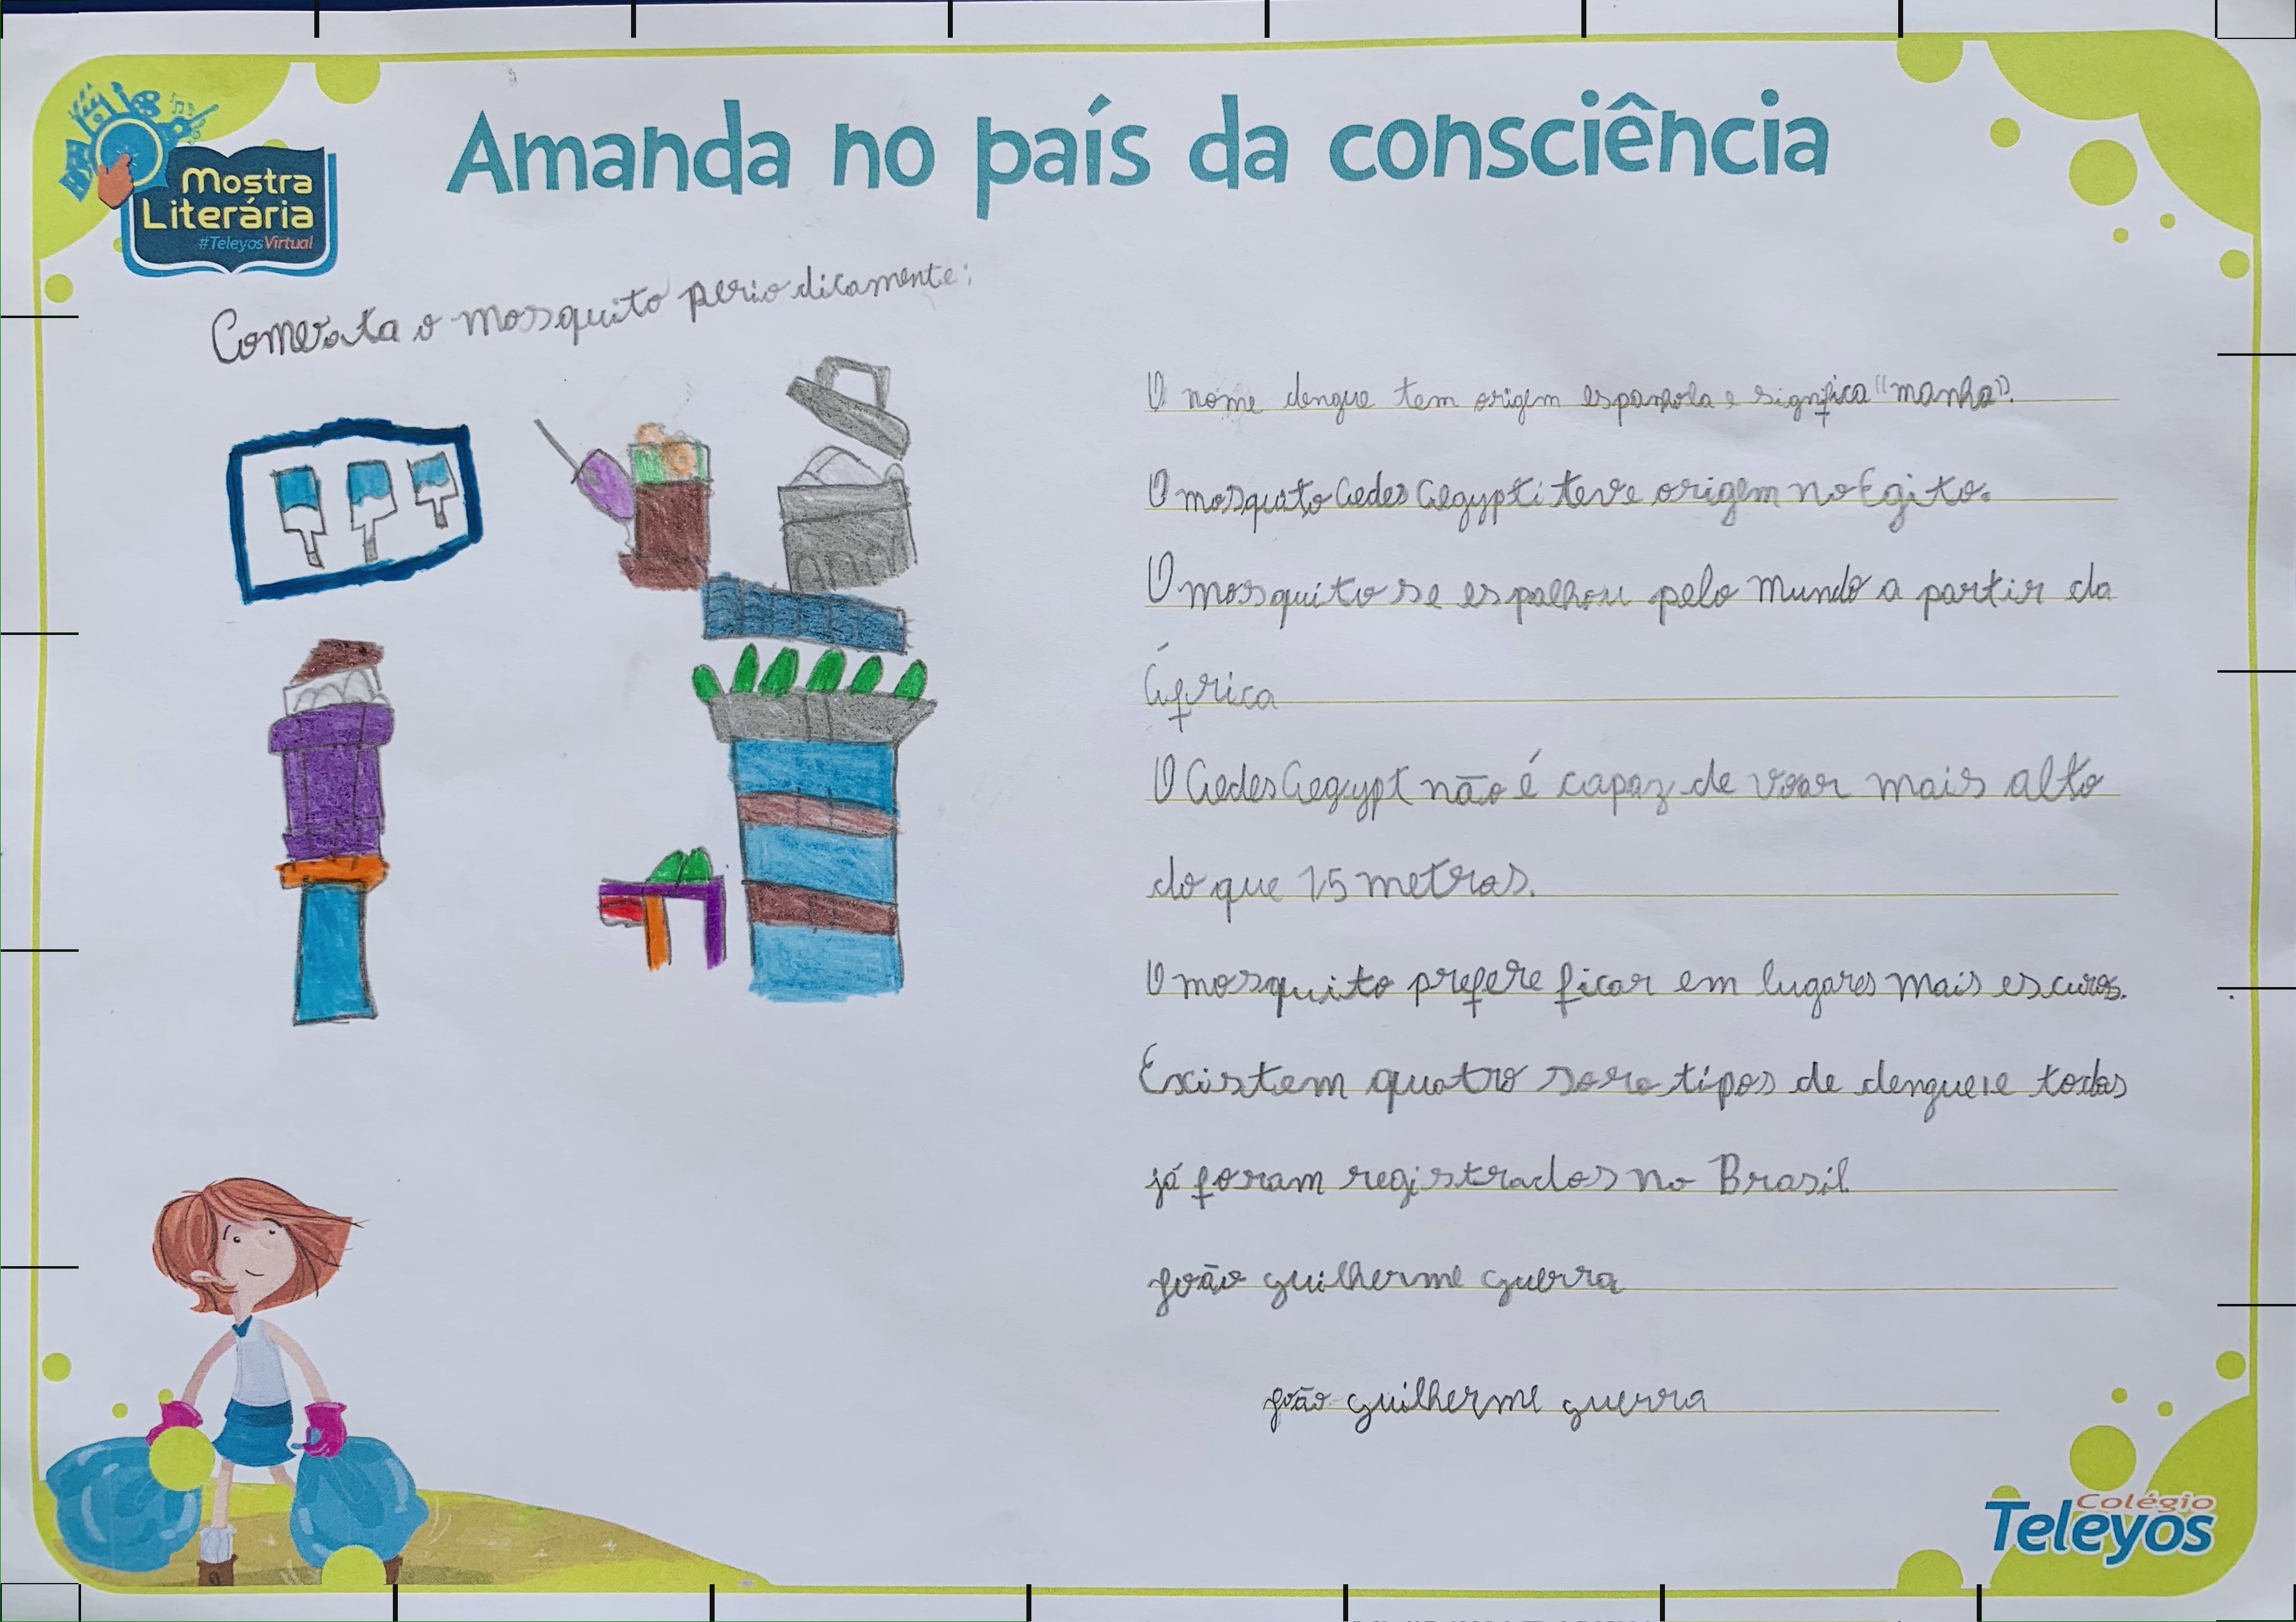 Amanda no país da consciência
Mostra
Literária
#TeleyosVirtual
o mosquito periodicamente:
O nome dengue tem origem espanhola e significa "manha".
O mosquito Aedes Aegypti teve origem no Egito.
O mosquito se espalhou pelo mundo a partir da
África
O Aedes Aegypt não é capaz de voar mais alto
do que 15 metros.
O mosquito prefere ficar em lugares mais escuros.
Existem quatro soro tipos de dengue e todos
já foram registrados no Brasil
joão guilherme guerra
joão guilherme guerra
Colégio
Teleyos